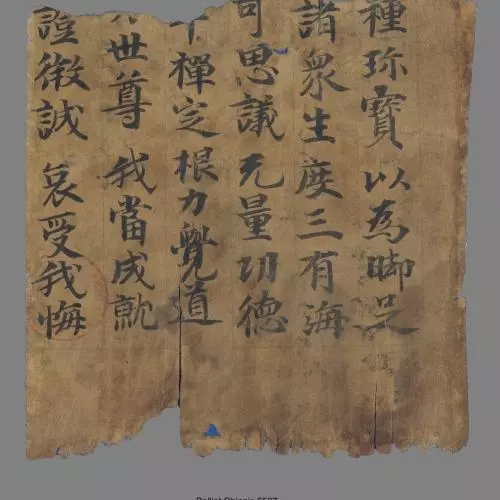 種珎寶 以為脚足
諸衆生度三有海
可思議 无量功德
禪定根力覺道
世尊 我當成就
證徵誠 哀受我悔